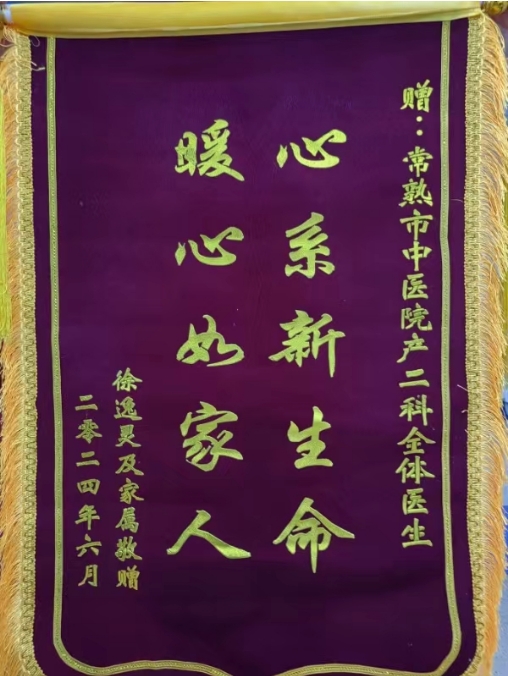 赠：常熟市中医院产二科全体医生
心系新生命
暖心如家人
徐逸灵及家属敬赠
二零二四年六月